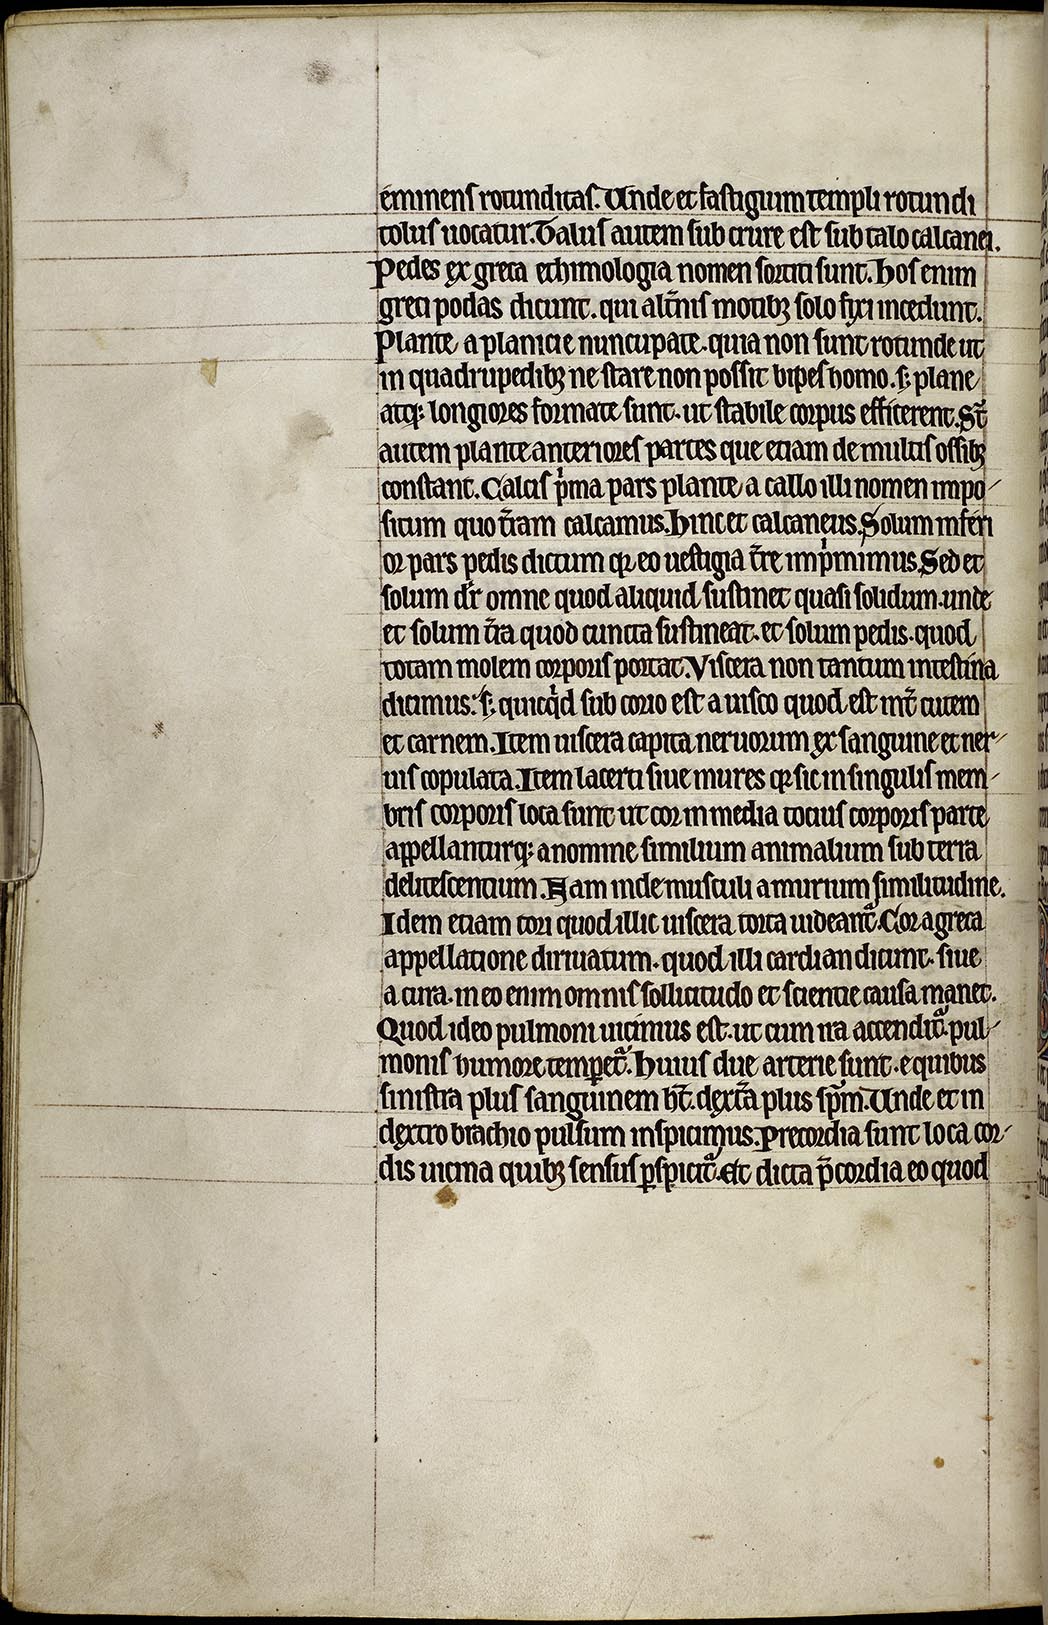 eminens rotunditas. Unde et fastigium templi rotundi
tolus uocatur. Talus autem sub crure est sub talo calcanei.
Pedes ex greca ethimologia nomen sortiti sunt. hos enim
greci podas dicunt. qui alt̄nis motibꝫ solo fixi incedunt.
Plante a planicie nuncupate. quia non sunt rotunde ut
in quadrupedibꝫ ne stare non possit bipes homo. sꝫ plane
atqꝫ longiores formate sunt. ut stabile corpus efficerent. St̄
autem plante anteriores partes que etiam de multis ossibꝫ
constant. Calcis pͥma pars plante, a callo illi nomen impo-
situm quo t̄ram calcamus. hinc et calcaneus. Solum inferi
or pars pedis dictum qꝛ eo uestigia t̄re impͥmimus. Sed et
solum dr̄ omne quod aliquid sustinet quasi solidum. unde
et solum t̄ra quod cuncta sustineat. et solum pedis. quod
totam molem corporis portat. Viscera non tantum intestina
dicimus: sꝫ quicqͥd sub corio est a uisco quod est int̄ cutem
et carnem. Item uiscera capita neruorum ex sanguine et ner-
uis copulata. Item lacerti siue mures qꝛ sic in singulis mem-
bris corporis loca sunt ut cor in media tocius corporis parte
appellanturqꝫ a nomine similium animalium sub terra
delitescentium. Nam inde musculi a murium similitudine.
Idem etiam tori quod illic uiscera torta uideantᷓ. Cor a greca
appellatione diriuatum. quod illi cardian dicunt. siue
a cura. in eo enim omnis sollicitudo et scientie causa manet.
Quod ideo pulmoni uicinus est. ut cum ira accenditᷓ. pul-
monis humore temꝑetᷓ. huius due arterie sunt. e quibus
sinistra plus sanguinem ht̄. dext̄a plus sp̄m. Unde et in
dextro brachio pulsum inspicimus. Precordia sunt loca cor-
dis uicina quibꝫ sensus ꝑspicitᷓ. Et dicta p̄cordia eo quod